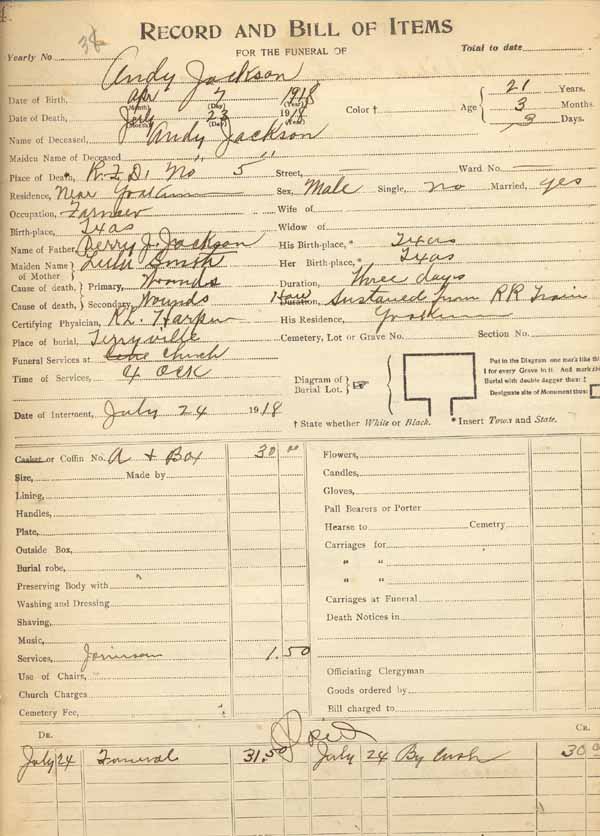 4.
RECORD AND BILL OF ITEMS
FOR THE FUNERAL OF
38
Yearly No
Total to date
Andy Jackson
Date of Birth, Apr 7 1918
(Month) (Day) (Year)
Color †
Age { 21 Years.
3 Months
3 Days.
Date of Death, July 23 1918
(Month) (Day) (Year)
Name of Deceased, Andy Jackson
Maiden Name of Deceased " "
Place of Death, R.F.D. No 5 Street, Ward No.
Residence, Near Yoakum Sex, Male Single, no Married, yes
Occupation, Farmer Wife of
Birth-place, Texas Widow of
Name of Father, Berry J. Jackson His Birth-place,* Texas
Maiden Name of Mother } Lula Smith Her Birth-place,* Texas
Cause of death, } Primary, Wounds Duration, Three days
Cause of death, } Secondary, Wounds How Duration, Sustained from RR Train
Certifying Physician, R.L. Harper His Residence, Yoakum
Place of burial, Terryville Cemetery, Lot or Grave No. Section No.
Funeral Services at Church
Time of Services, 4 OCK
Diagram of Burial Lot. } ☞
Put in the Diagram one mark like thi
I for every Grave in it. And mark the
Burial with double dagger thus: ‡
Designate site of Monument thus:
Date of Interment, July 24 1918
† State whether White or Black. * Insert Town and State.
Casket or Coffin No. A + Box 30 00
Flowers,
Size, Made by
Candles,
Lining,
Gloves,
Handles,
Pall Bearers or Porter
Plate,
Hearse to Cemetry
Outside Box,
Carriages for
Burial robe,
" "
Preserving Body with
" "
Washing and Dressing
Carriages at Funeral
Shaving,
Death Notices in
Music,
Services, 1.50
Use of Chairs,
Officiating Clergyman
Church Charges
Goods ordered by
Cemetery Fee,
Bill charged to
DR. CR.
Paid
July 24 Funeral 31.50 July 24 By Cash 30 00